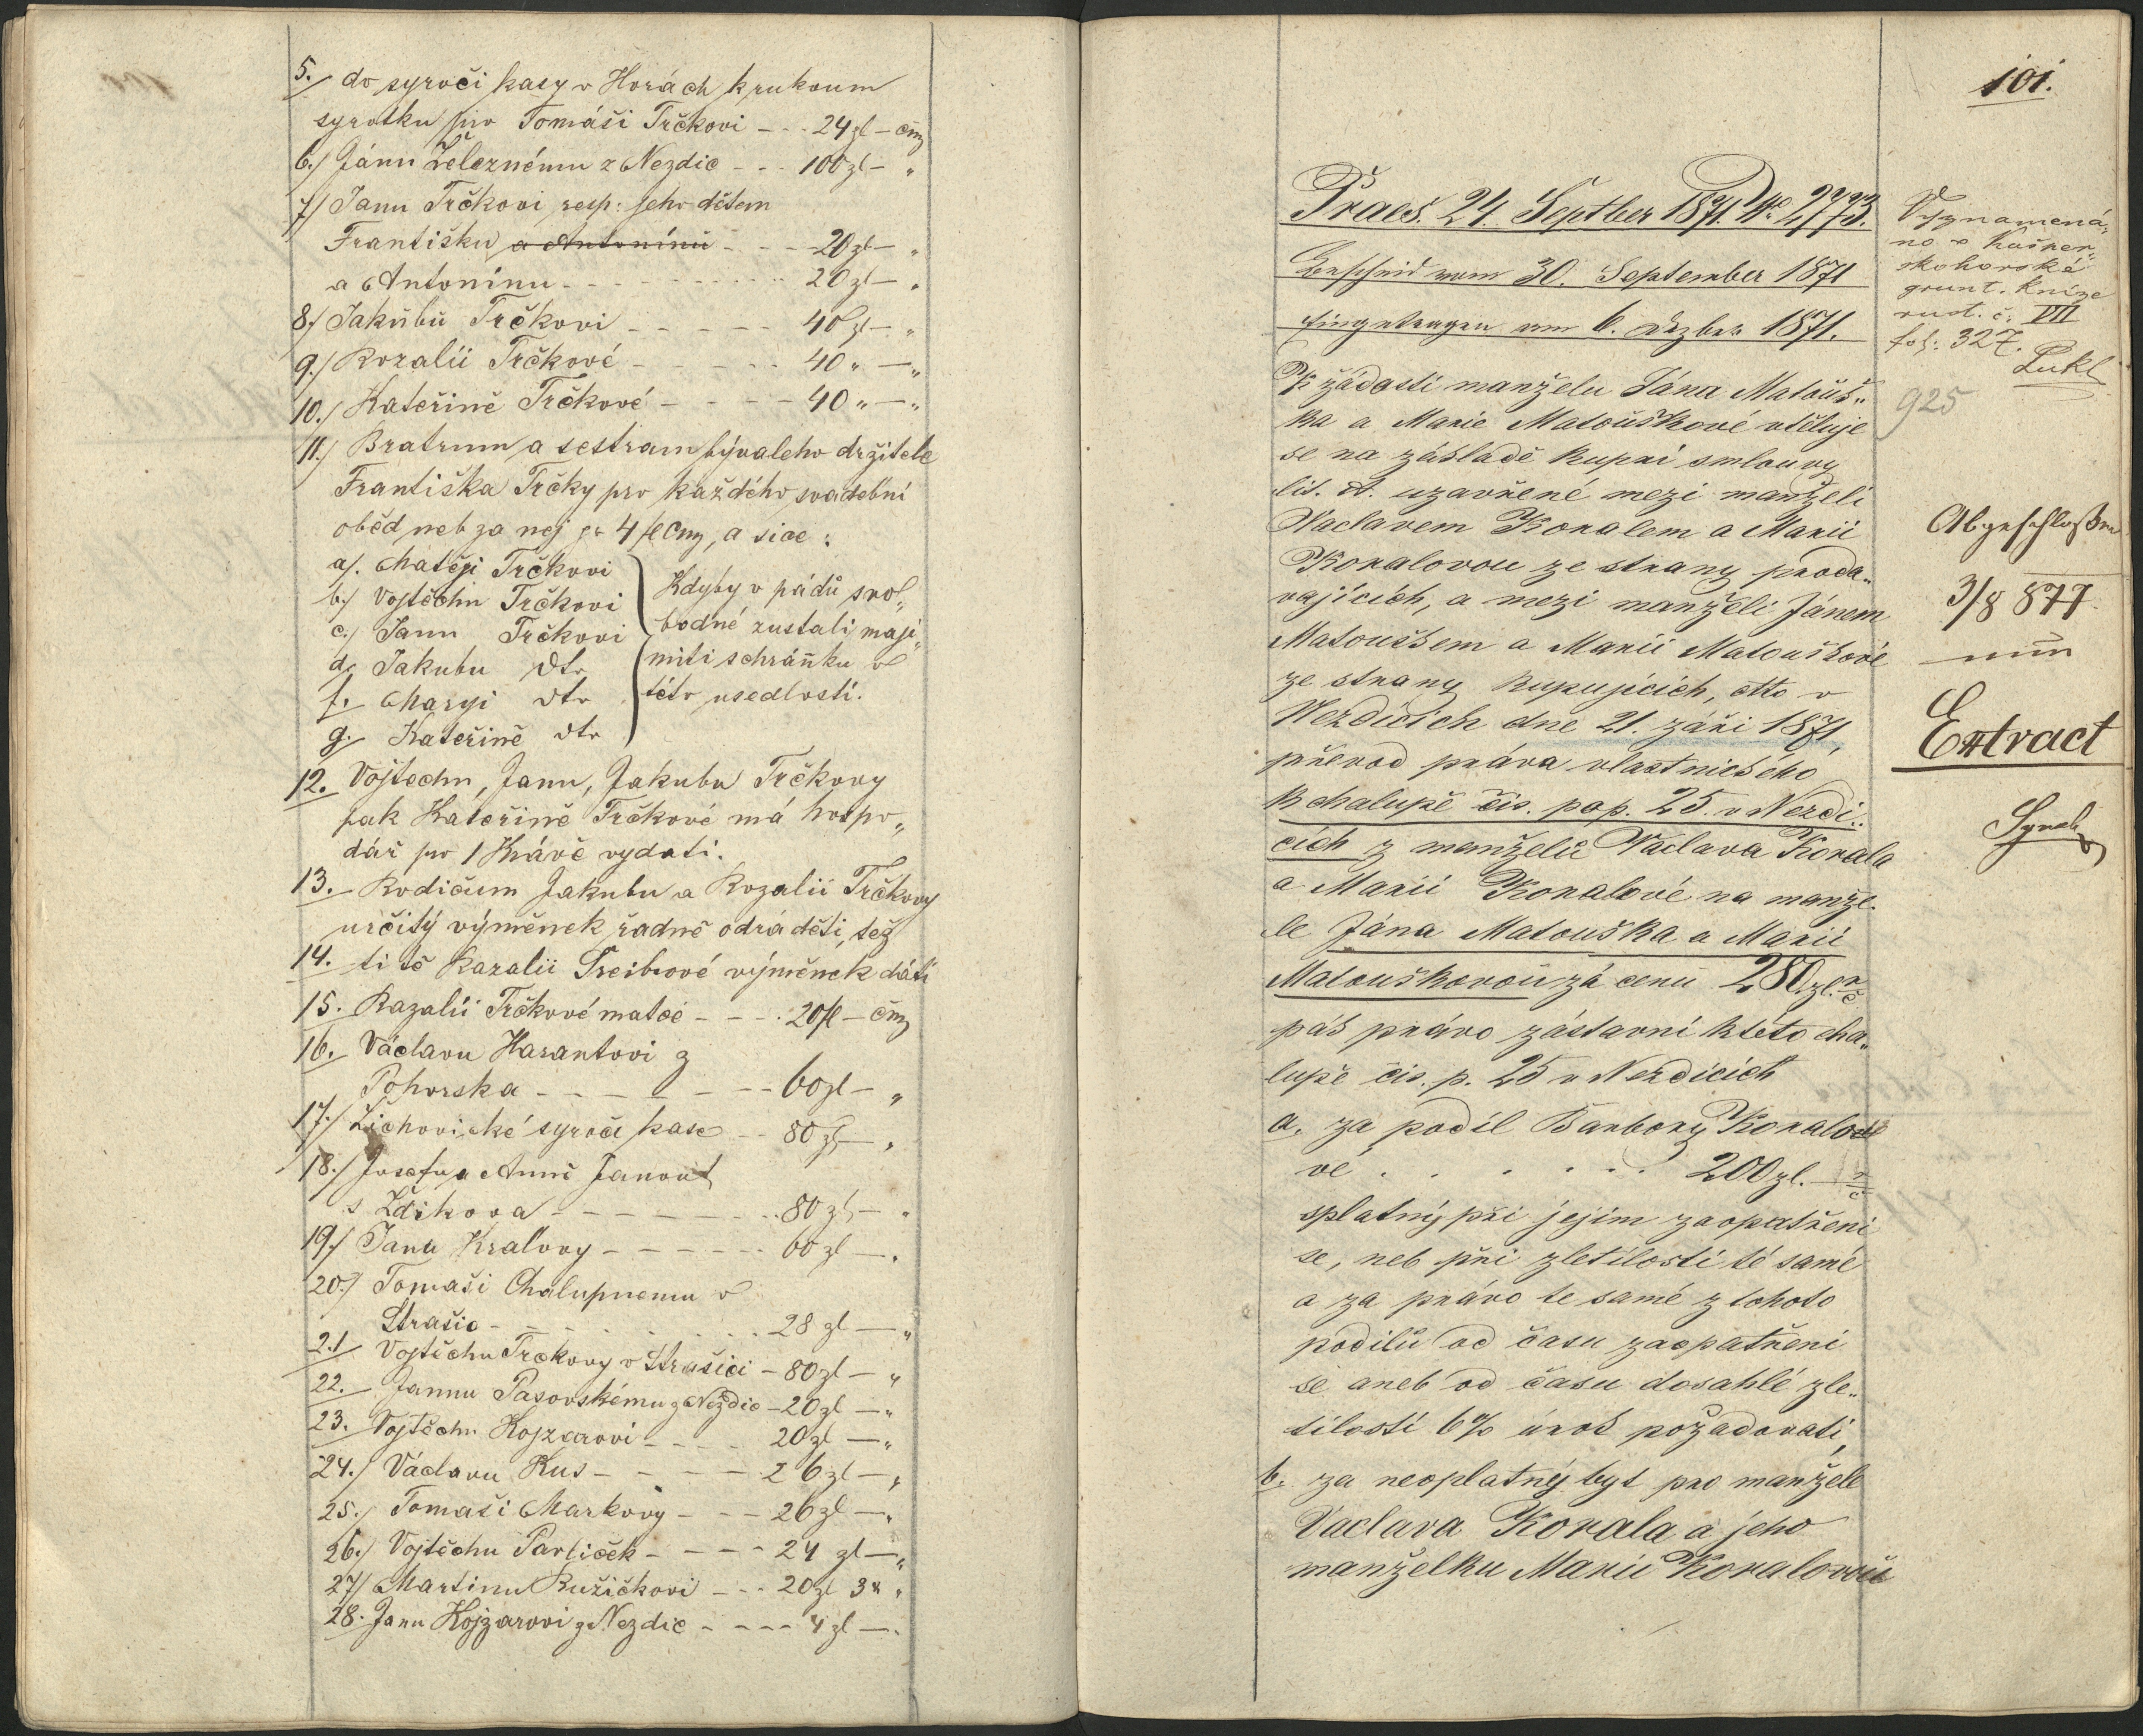 5. do syročí kasy v Horách k rukoum
syrotku pro Tomáši Trčkovi - - - 24 zl - čm
6./ Jánu Železnému z Nezdic - - - 100 zl - "
7/ Janu Trčkovi resp: jeho dětem
Františku a Antonínů - - - 20 zl - "
a Antonínu - - - 20 zl - "
8./ Jakůbů Trčkovi - - - 40 zl - "
9./ Rozalii Trčkové - - - 40 " - "
10./ Kateřině Trčkové - - - 40 " - "
11./ Bratrum a sestram bývaleho držitele
Františka Trčky pro každého svadební
oběd neb za nej pr 4 fl Cm, a sice:
a/. Matěji Trčkovi
b./ Vojtěchu Trčkovi
c./ Janu Trčkovi
d. Jakubu dto
f. Maryi dto
g. Kateřině dto
Kdyby v pádů svo„
bodné zustali, maji
míti schráňku v
této usedlosti.
12. Vojtechu, Janu, Jakubu Trčkovy
pak Kateřině Trčkové má hospo„
dář po 1 Krávě vydati.
13. Rodičum Jakubu a Rozalii Trčkovy
určitý výměnek řadně odváděti, též
14. ti tě Razalii Treibrové výměnek dáti
15. Razalii Trčkové matce - - - 20 fl - čm
16. Václavu Harantovi z
Pohorska - - - 60 zl - "
17./ Žichovické syročí kase - - 80 zl - "
18./ Josefu a Anně Janout
s Ždikova - - - 80 zl - "
19./ Jana Kralovy - - - 60 zl - "
20./ Tomaši Chalupnemu v
Strašic - - - 28 zl - "
21 Vojtěchu Trckovy v Strašici - 80 zl - "
22. Jannu Pasovskému z Nezdic - 20 zl - "
23. Vojtěchu Kojzarovi - - - 20 zl - "
24./ Václavu Kus - - - 26 zl - "
25./ Tomaši Markovy - - - 26 zl - "
26./ Vojtěchu Parliček - - - 24 zl - "
27/ Martinu Ružičkovi - - - 20 zl 3 x "
28. Janu Kojzarovi z Nezdic - - - 4 zl - "
101.
Praes. 24. Septber 1871. No 2773.
Bescheid vom 30. September 1871
Eingetragen am 6. Dezber 1871.
K žádosti manželu Jána Matouš„
ka a Marie Matouškové vtěluje
se na základě kupní smlouvy
lit. A. uzavřené mezi manželi
Vaclavem Koralem a Marií
Koralovou ze strany proda„
vajících, a mezi manželi Jánem
Matouškem a Marií Matouškové
ze strany kupujících, dtto v
Nezdicich dne 21. záři 1871,
převod práva vlastnického
k chalupě čis. pop. 25. v Nezdi„
cích z manželů Vaclava Korala
a Marii Koralové na manže„
le Jána Matouška a Marii
Matouškovoů zá cenu 280. zl. rč
pák právo zástavní k této cha„
lupě čis. p. 25 v Nezdicích
a. za podíl Barbory Koralo
vé . . . . . . 200 zl. - rč
splatný při jejím zaopatřeni
se, neb při zletilosti té samé
a za právo te samé z tohoto
podílů od času zaopatřeni
se aneb od času dosahlé zle„
tilosti 6% úrok požadovati,
b. za neoplatný byt pro manžele
Vaclava Korala a jeho
manželku Marii Koralovoů
Vyznamená„
no v Kašper„
skohorské
grunt. knize
rust. č. VIII
fol. 327.
Lukl
925
Abgeschloßen
3/8 877
Extract